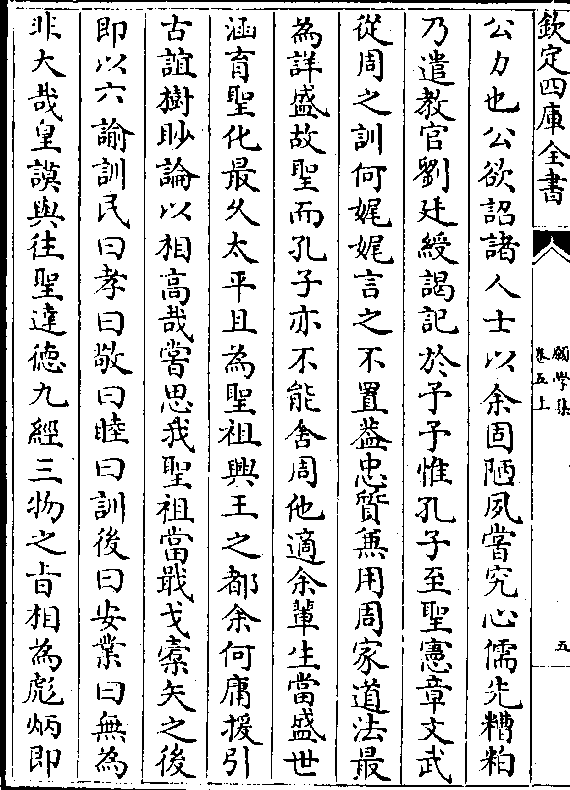 欽定四庫全書
願學集
卷五上
五
公力也公欲詔諸人士以余固陋夙嘗究心儒先糟粕
乃遣教官劉廷綬謁記於予予惟孔子至聖憲章文武
從周之訓何娓娓言之不置葢忠質兼用周家道法最
為詳盛故聖而孔子亦不能舍周他適余軰生當盛世
涵育聖化最乆太平且為聖祖興王之都余何庸援引
古誼樹眇論以相髙哉嘗思我聖祖當戢戈櫜矢之後
即以六諭訓民曰孝曰敬曰睦曰訓後曰安業曰無為
非大哉皇謨與往聖達德九經三物之㫖相為彪炳即